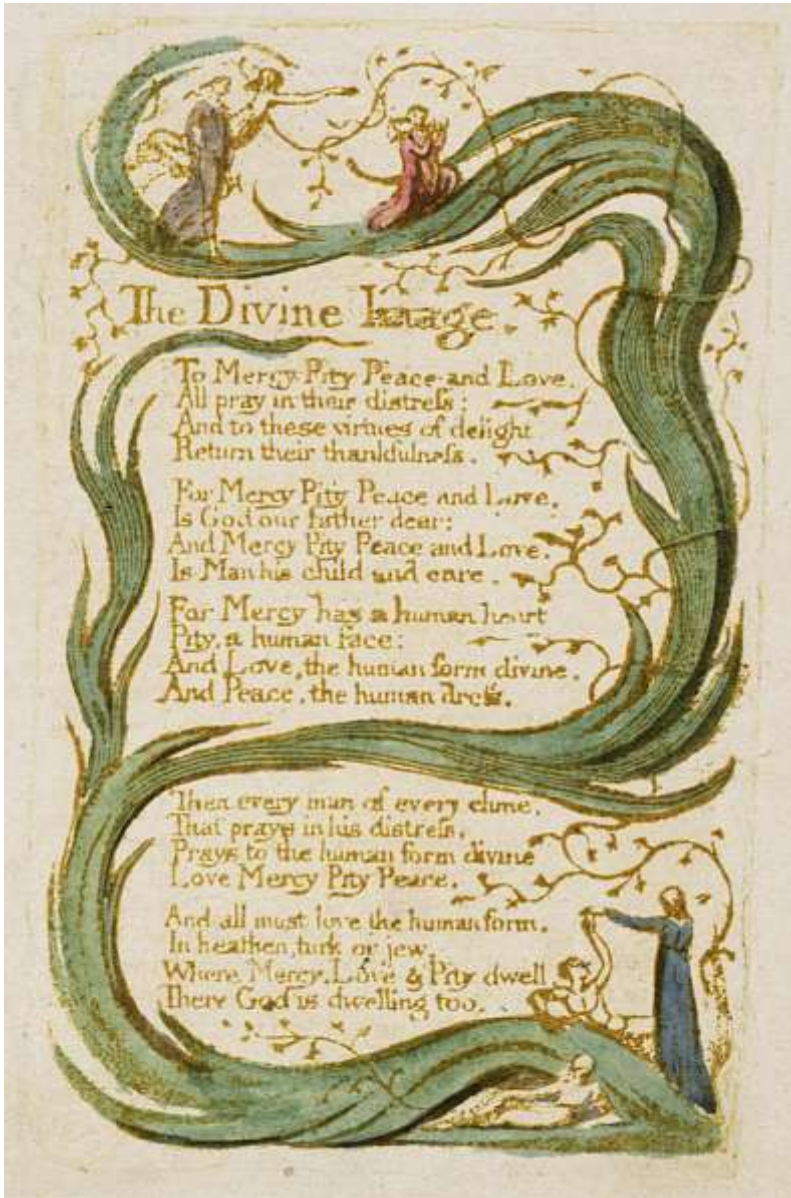 The Divine Image.
To Mercy Pity Peace and Love,
All pray in their distreſs:
And to these virtues of delight
Return their thankfulneſs.
For Mercy Pity Peace and Love,
Is God our father dear:
And Mercy Pity Peace and Love,
Is Man his child and care.
For Mercy has a human heart
Pity, a human face:
And Love, the human form divine,
And Peace, the human dreſs.
Then every man of every clime,
That prays in his distreſs,
Prays to the human form divine
Love Mercy Pity Peace.
And all must love the human form,
In heathen, turk or jew,
Where Mercy, Love & Pity dwell
There God is dwelling too.